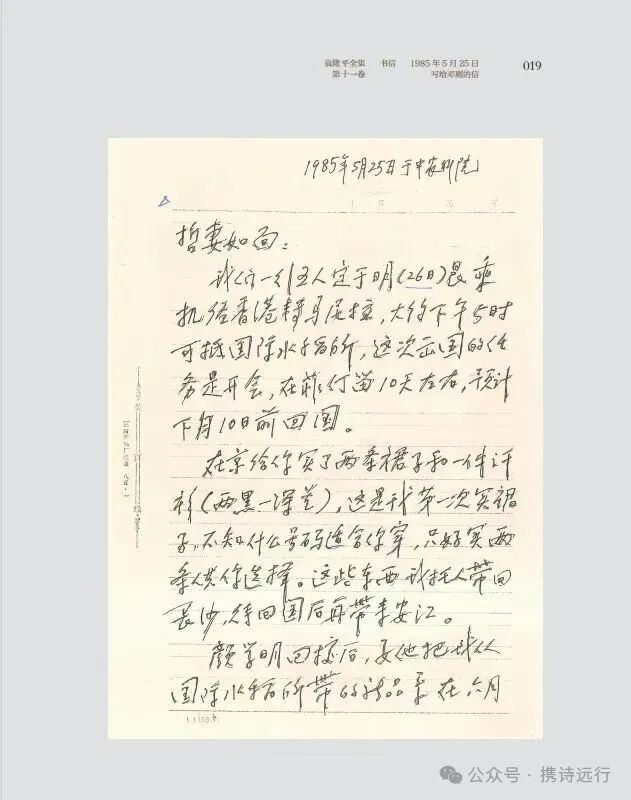 袁隆平全集 书信 1985年5月25日 019
第十一卷 写给邓则的信
1985年5月25日于中农科院
哲妻如面：
我们一行五人定于明(26日)晨乘
机经香港转马尼拉，大约下午5时
可抵国际水稻所，这次出国的任
务是开会，在菲仃留10天左右，预计
下月10日前回国。
在京给你买了两条裙子和一件汗
衫(两黑一深兰)，这是我第一次买裙
子，不知什么号码适合你穿，只好买两
条供你选择。这些东西我托人带回
长沙，待回国后再带来安江。
颜学明回校后，要他把我从
国际水稻所带的 在六月
公众号·携诗远行